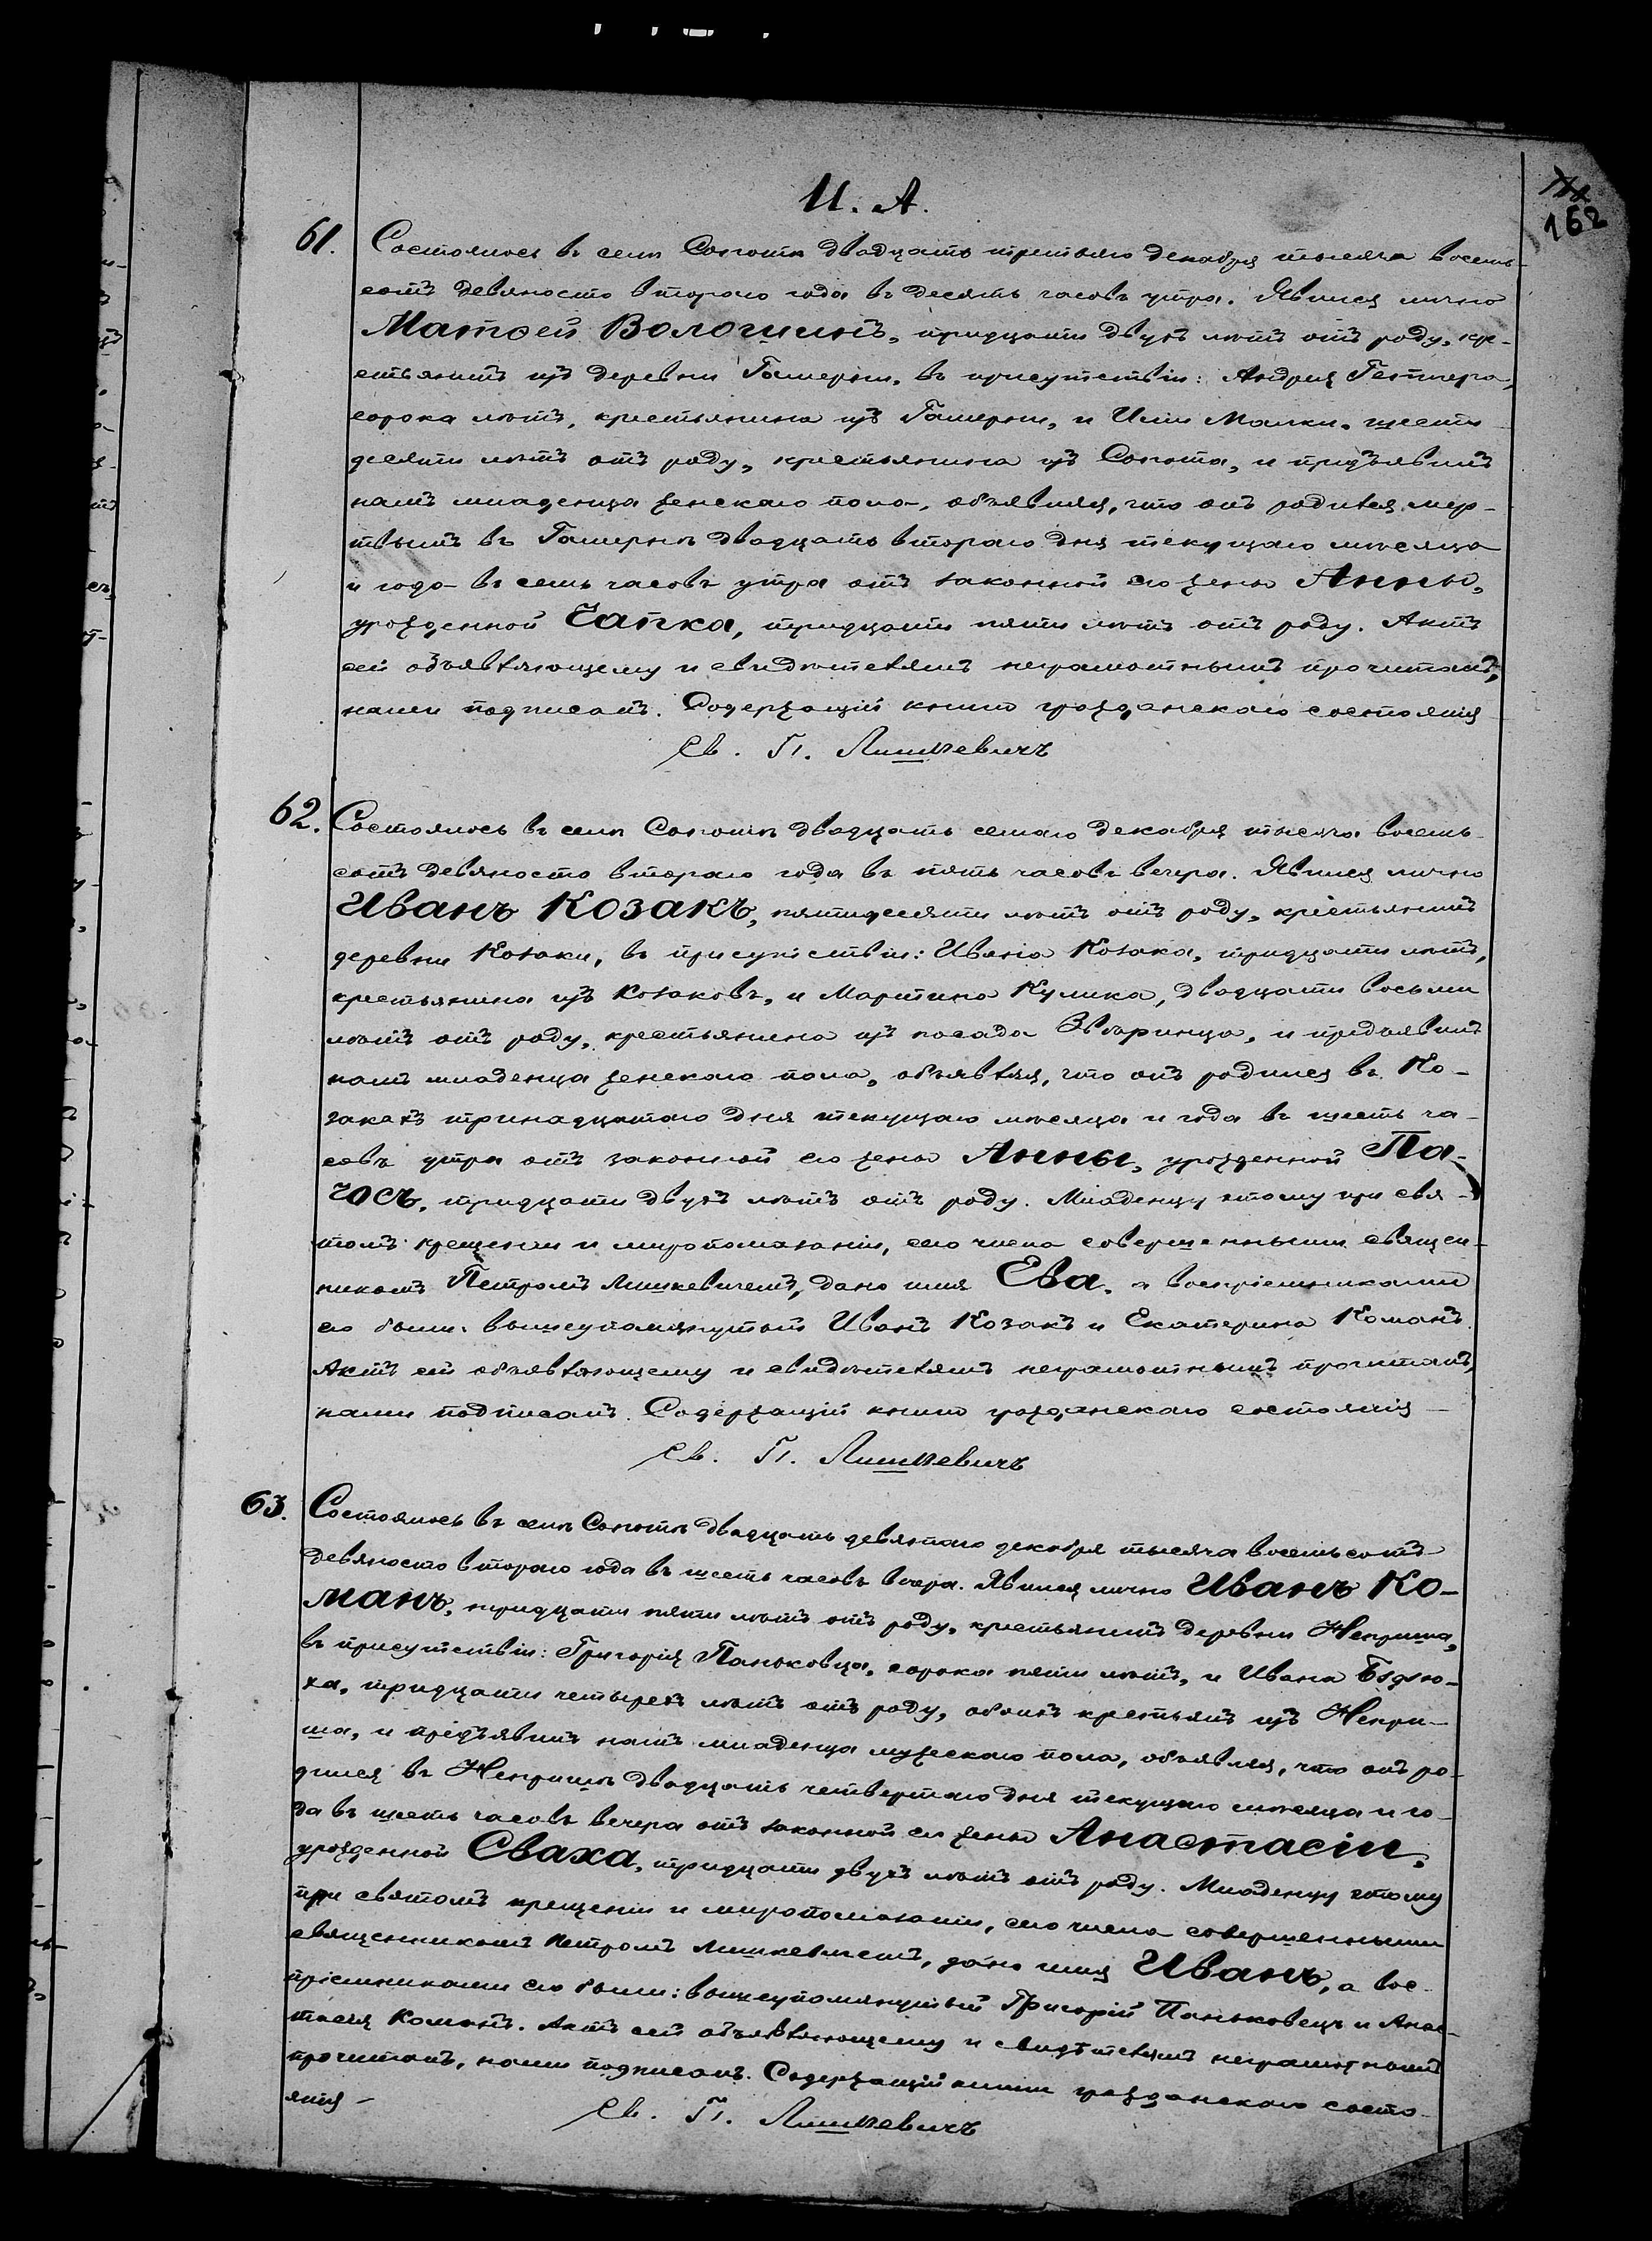 И. А.
162
61. Состоялось въ селѣ Сопотѣ двадцать третьяго декабря тысяча восемь-
сотъ девяносто втораго года въ десять часовъ утра. Явился лично
Матѳей Волошинъ, тридцати двухъ лѣтъ отъ роду, кре-
стьянинъ изъ деревни Гамерни, въ присутствіи: Андрея
сорока лѣтъ, крестьянина изъ Гамерни, и Иліи Малки, шести
десяти лѣтъ отъ роду, крестьянина изъ Сопота, и предъявилъ
намъ младенца женскаго пола, объявляя, что онъ родился мер-
твымъ въ Гамернѣ двадцать втораго дня текущаго мѣсяца
и года въ семь часовъ утра отъ законной его жены Анны,
урожденной Чапка, тридцати пяти лѣтъ отъ роду. Актъ
сей объявляющему и свидѣтелямъ неграмотнымъ прочитанъ,
нами подписанъ. Содержащій книги гражданскаго состоянія
Св. П. Лишкевичъ
62. Состоялось въ селѣ Сопотѣ двадцать седьмаго декабря тысяча восемь-
сотъ девяносто втораго года въ пять часовъ вечера. Явился лично
Иванъ Козакъ, пятидесяти лѣтъ отъ роду, крестьянинъ
деревни Козаки, въ присутствіи: Ивана Козака, тридцати лѣтъ,
крестьянина изъ Козаковъ, и Мартина Кулика, двадцати восьми
лѣтъ отъ роду, крестьянина изъ посада Звѣринца, и предъявилъ
намъ младенца женскаго пола, объявляя, что онъ родился въ Ко-
закахъ тринадцатаго дня текущаго мѣсяца и года въ шесть ча-
совъ утра отъ законной его жены Анны, урожденной Па-
чосъ, тридцати двухъ лѣтъ отъ роду. Младенцу этому при свя-
томъ крещеніи и мѵропомазаніи, сего числа совершенными священ-
никомъ Петромъ Лишкевичемъ, дано имя Ева, а воспріемниками
его были: вышеупомянутый Иванъ Козакъ и Екатерина Команъ.
Актъ сей объявляющему и свидѣтелямъ неграмотнымъ прочитанъ,
нами подписанъ. Содержащій книги гражданскаго состоянія
Св. П. Лишкевичъ
63. Состоялось въ селѣ Сопотѣ двадцать девятаго декабря тысяча восемьсотъ
девяносто втораго года въ шесть часовъ вечера. Явился лично Иванъ Ко-
манъ, тридцати пяти лѣтъ отъ роду, крестьянинъ деревни Неприша,
въ присутствіи: Григорія Паньковца, сорока пяти лѣтъ, и Ивана
тридцати четырехъ лѣтъ отъ роду, обоихъ крестьянъ изъ Непри-
ша, и предъявилъ намъ младенца мужескаго пола, объявляя, что онъ ро-
дился въ Непришѣ двадцать четвертаго дня текущаго мѣсяца и го-
да въ шесть часовъ вечера отъ законной его жены Анастасіи,
урожденной Сваха, тридцати двухъ лѣтъ отъ роду. Младенцу этому
при святомъ крещеніи и мѵропомазаніи, сего числа совершенными
священникомъ Петромъ Лишкевичемъ, дано имя Иванъ, а вос-
пріемниками его были: вышеупомянутый Григорій Паньковецъ и Анас-
тасія Команъ. Актъ сей объявляющему и свидѣтелямъ неграмотнымъ
прочитанъ, нами подписанъ. Содержащій книги гражданскаго состо-
янія
Св. П. Лишкевичъ